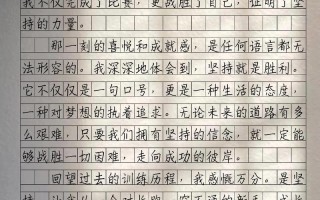 我不仅完成了比赛，更战胜了自己，证明了坚
持的力量。
那一刻的喜悦和成就感，是任何语言都无
法形容的。我深深地体会到，坚持就是胜利。
它不仅仅是一句口号，更是一种生活的态度，
一种对梦想的执着追求。无论未来的道路有多
么艰难，只要我们拥有坚持的信念，就一定能
够战胜一切困难，走向成功的彼岸。
回望过去的训练历程，我感慨万分。是坚